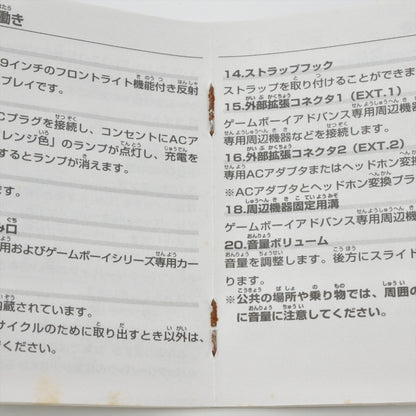 働き
9インチのフロントライト機能付き反射
プレイです。
ACプラグを接続し、コンセントにACア
レンジ色”のランプが点灯し、充電を
するとランプが消えます。
み口
用およびゲームボーイシリーズ専用カー
蔵されています。
サイクルのために取り出すとき以外は、
でください。
14.ストラップフック
ストラップを取り付けることができま
15.外部拡張コネクタ1（EXT.1）
ゲームボーイアドバンス専用周辺機
専用周辺機器などを接続します。
16.外部拡張コネクタ2（EXT.2）
専用ACアダプタまたはヘッドホン変換
※ACアダプタとヘッドホン変換プラ
18.周辺機器固定用溝
ゲームボーイアドバンス専用周辺機
20.音量ボリューム
音量を調整します。後方にスライド
ります。
※公共の場所や乗り物では、周囲の
に音量に注意してください。